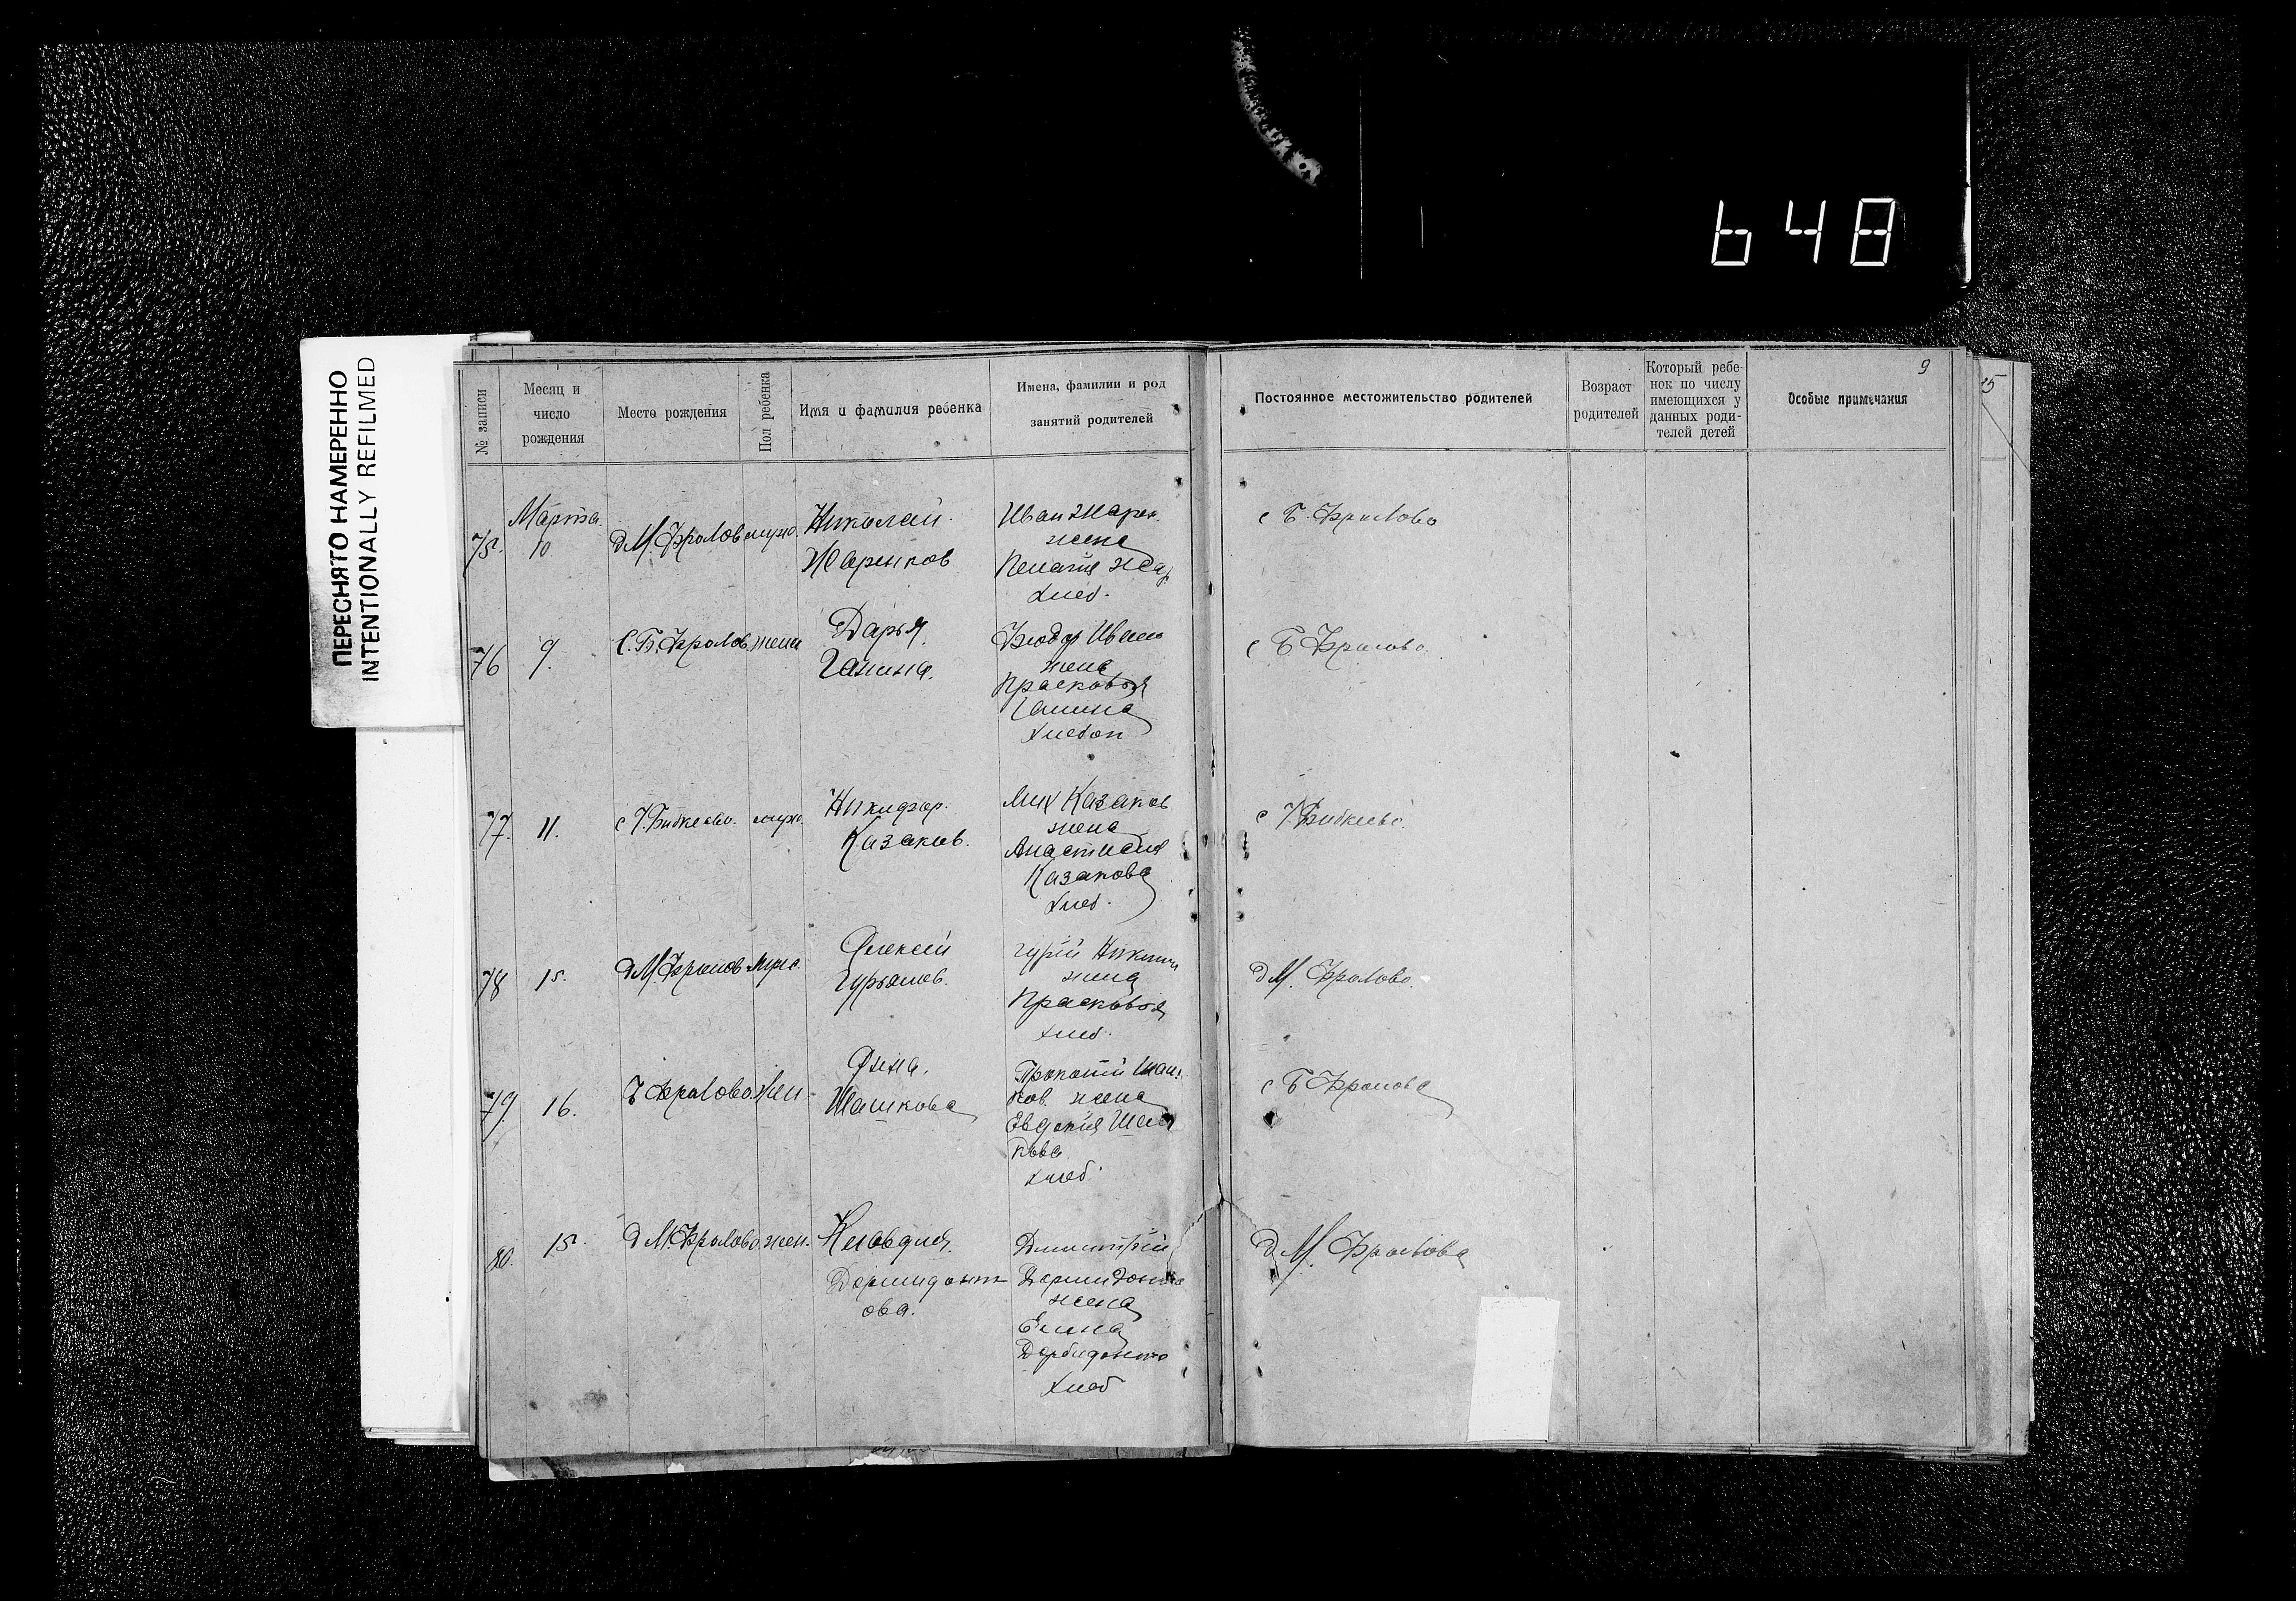 648
ПЕРЕСНЯТО НАМЕРЕННО
INTENTIONALLY REFILMED
№ записи
Месяц и
число
рождения
Место рождения
Пол ребенка
Имя и фамилия ребенка
Имена, фамилии и род
занятий родителей
Постоянное местожительство родителей
Возраст
родителей
Который ребе-
нок по числу
имеющихся у
данных роди-
телей детей
Особые примечания
9
15
75.
Марта
10
д М. Фролов
муж.
Николай
Жаренков
Иван Жарен.
жена
Пелагия Жар
хлеб.
с Б. Фролово
76
9.
С. Б. Фролов
жен
Дарья
Ганина.
Феодор Ивано
жена
Прасковья
Ганина
хлебоп
с Б Фролово.
77.
11.
муж.
Никифор.
Казаков.
Мих Казаков
жена
Анастасия
Казакова
хлеб.
78
15.
д М. Фролов
муж.
Алексей
Гурьянов.
Гурий Никити
жена
Прасковья
хлеб.
д М. Фролово.
79.
16.
Б Фролово
жен
Анна.
Шашкова
Прокопий Шаш
ков. жена
Евдокия Шаш
кова
хлеб
с Б Фролова
80.
15.
д М. Фролово
жен.
Клавдия.
Дормидонт
ова.
Димитрий
Дормидонто
жена
Елена
Дорбидонто
хлеб
д М. Фролова